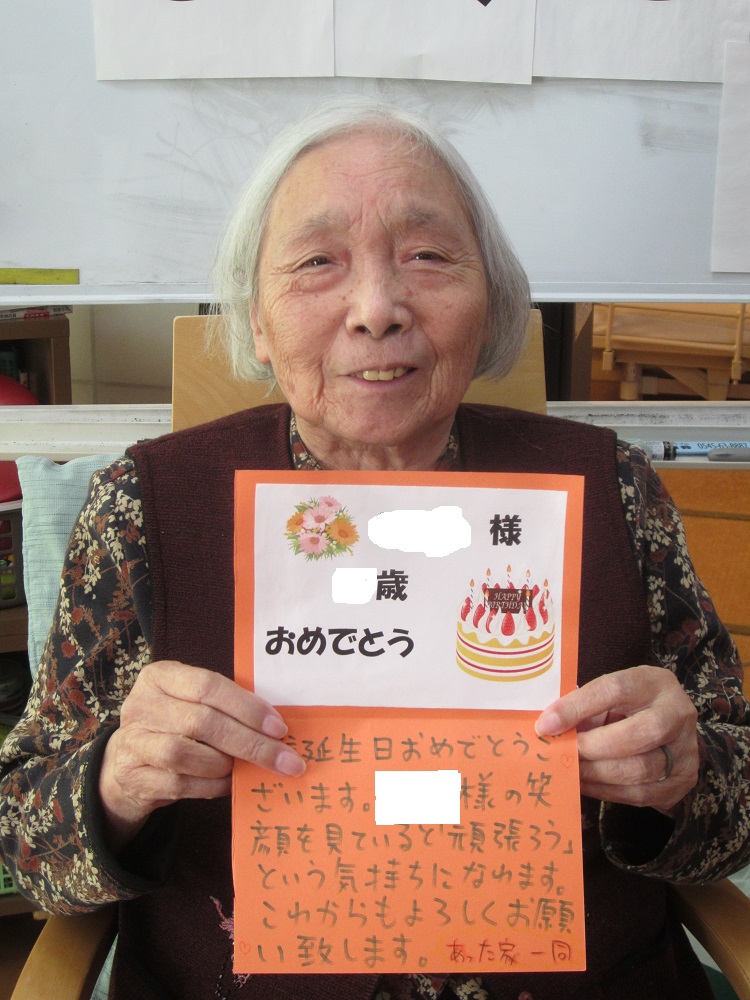 様
歳
おめでとう
HAPPY
BIRTHDAY
誕生日おめでとうご
ざいます。 様の笑
顔を見ていると「頑張ろう」
という気持ちになれます。
これからもよろしくお願
い致します。 あった家一同
0545-63-8887